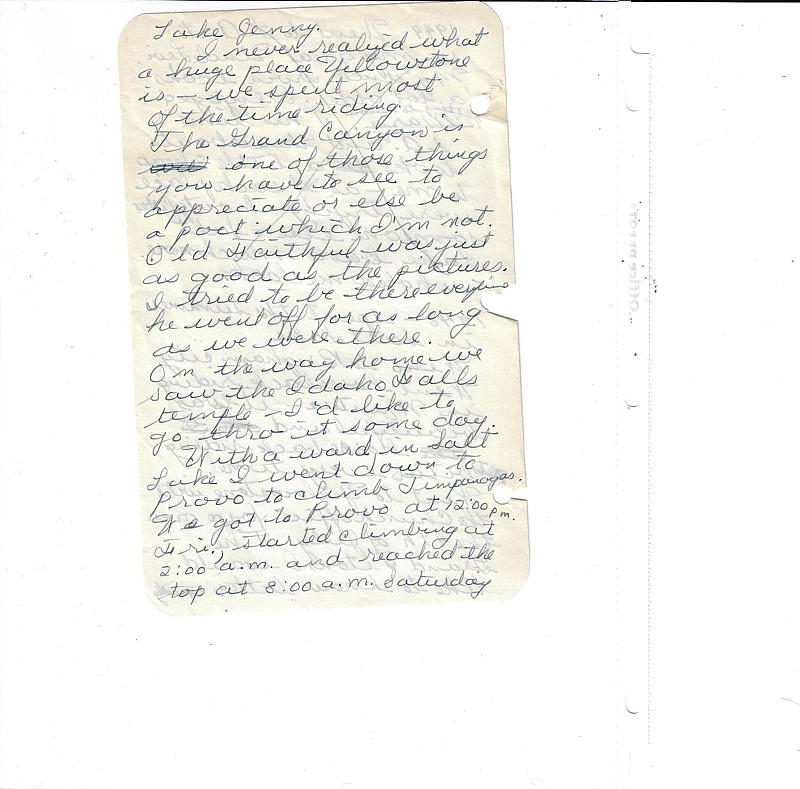 Lake Jenny.
I never realized what
a huge place Yellowstone
is – we spent most
of the time riding.
The Grand Canyon is
one of those things
you have to see to
appreciate or else be
a poet which I'm not.
Old Faithful was just
as good as the pictures.
I tried to be there everytime
he went off for as long
as we were there.
On the way home we
saw the Idaho Falls
temple – I'd like to
go thro it some day.
With a ward in Salt
Lake I went down to
Provo to climb Timpanogas.
We got to Provo at 12:00 p.m.
Fri., started climbing at
2:00 a.m. and reached the
top at 8:00 a.m. Saturday
OFFICE DEPOT